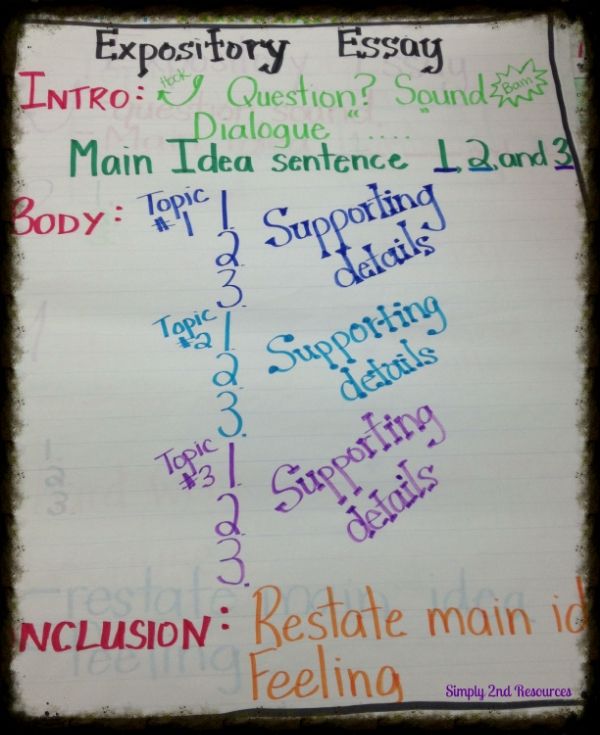 Expository Essay
INTRO: Hook Question? Sound Bam
Dialogue "...."
Main Idea sentence 1, 2, and 3
BODY: Topic #1 1. Supporting details
2.
3.
Topic #2 1. Supporting details
2.
3.
Topic #3 1. Supporting details
2.
3.
NCLUSION: Restate main id
Feeling
Simply 2nd Resources